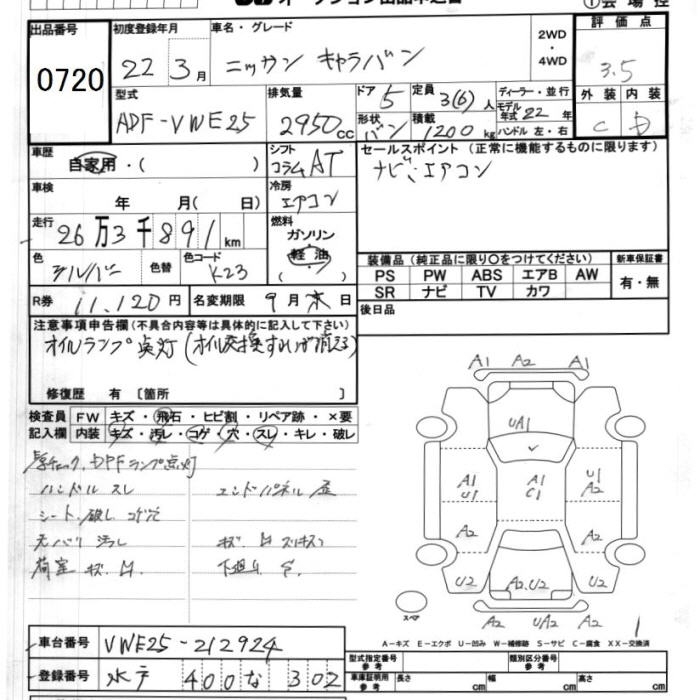 出品番号 0720
初度登録年月 22年 3月
車名・グレード ニッサン キャラバン
2WD・4WD
評価点 3.5
外装 C 内装 D
型式 ADF-VWE25
排気量 2950cc
ドア 5 形状 バン
定員 3(6)人 積載 1200kg
ディーラー・並行
モデル年式 22年
ハンドル 左・右
車歴 自家用・( )
シフト コラムAT
セールスポイント (正常に機能するものに限ります)
ナビ、エアコン
車検 年 月( 日)
冷房 エアコン
走行 26万3千891km
燃料 ガソリン 軽油 ( ・ )
色 シルバー 色替 色コード K23
装備品 (純正品に限り○をつけてください) 新車保証書
PS PW ABS エアB AW 有・無
SR ナビ TV カワ
R券 11,120円 名変期限 9月末日
後日品
注意事項申告欄 (不具合内容等は具体的に記入して下さい)
オイルランプ点灯(オイル交換すれば消える)
修復歴 有 [箇所 ]
検査員記入欄 FW キズ・飛石・ヒビ割・リペア跡・×要
内装 キズ・汚レ・コゲ・穴・スレ・キレ・破レ
DPFランプ点灯
ハンドル スレ エンドパネル
シート 破レ コゲ穴
天バリ 汚レ キズ
荷室 キズ 下廻り サ
A1 A2 A1
UA1
A1 U1 A1 C1 U1 A2
A2 A2
U2 A2.U2 U2
A2 UA2 A2
スペア 1
A-キズ E-エクボ U-凹み W-補修跡 S-サビ C-腐食 XX-交換済
車台番号 VWE25-212924
型式指定番号 参考 類別区分番号 参考
登録番号 水戸 400 な 302
車庫証明用 参考 長さ cm 幅 cm 高さ cm